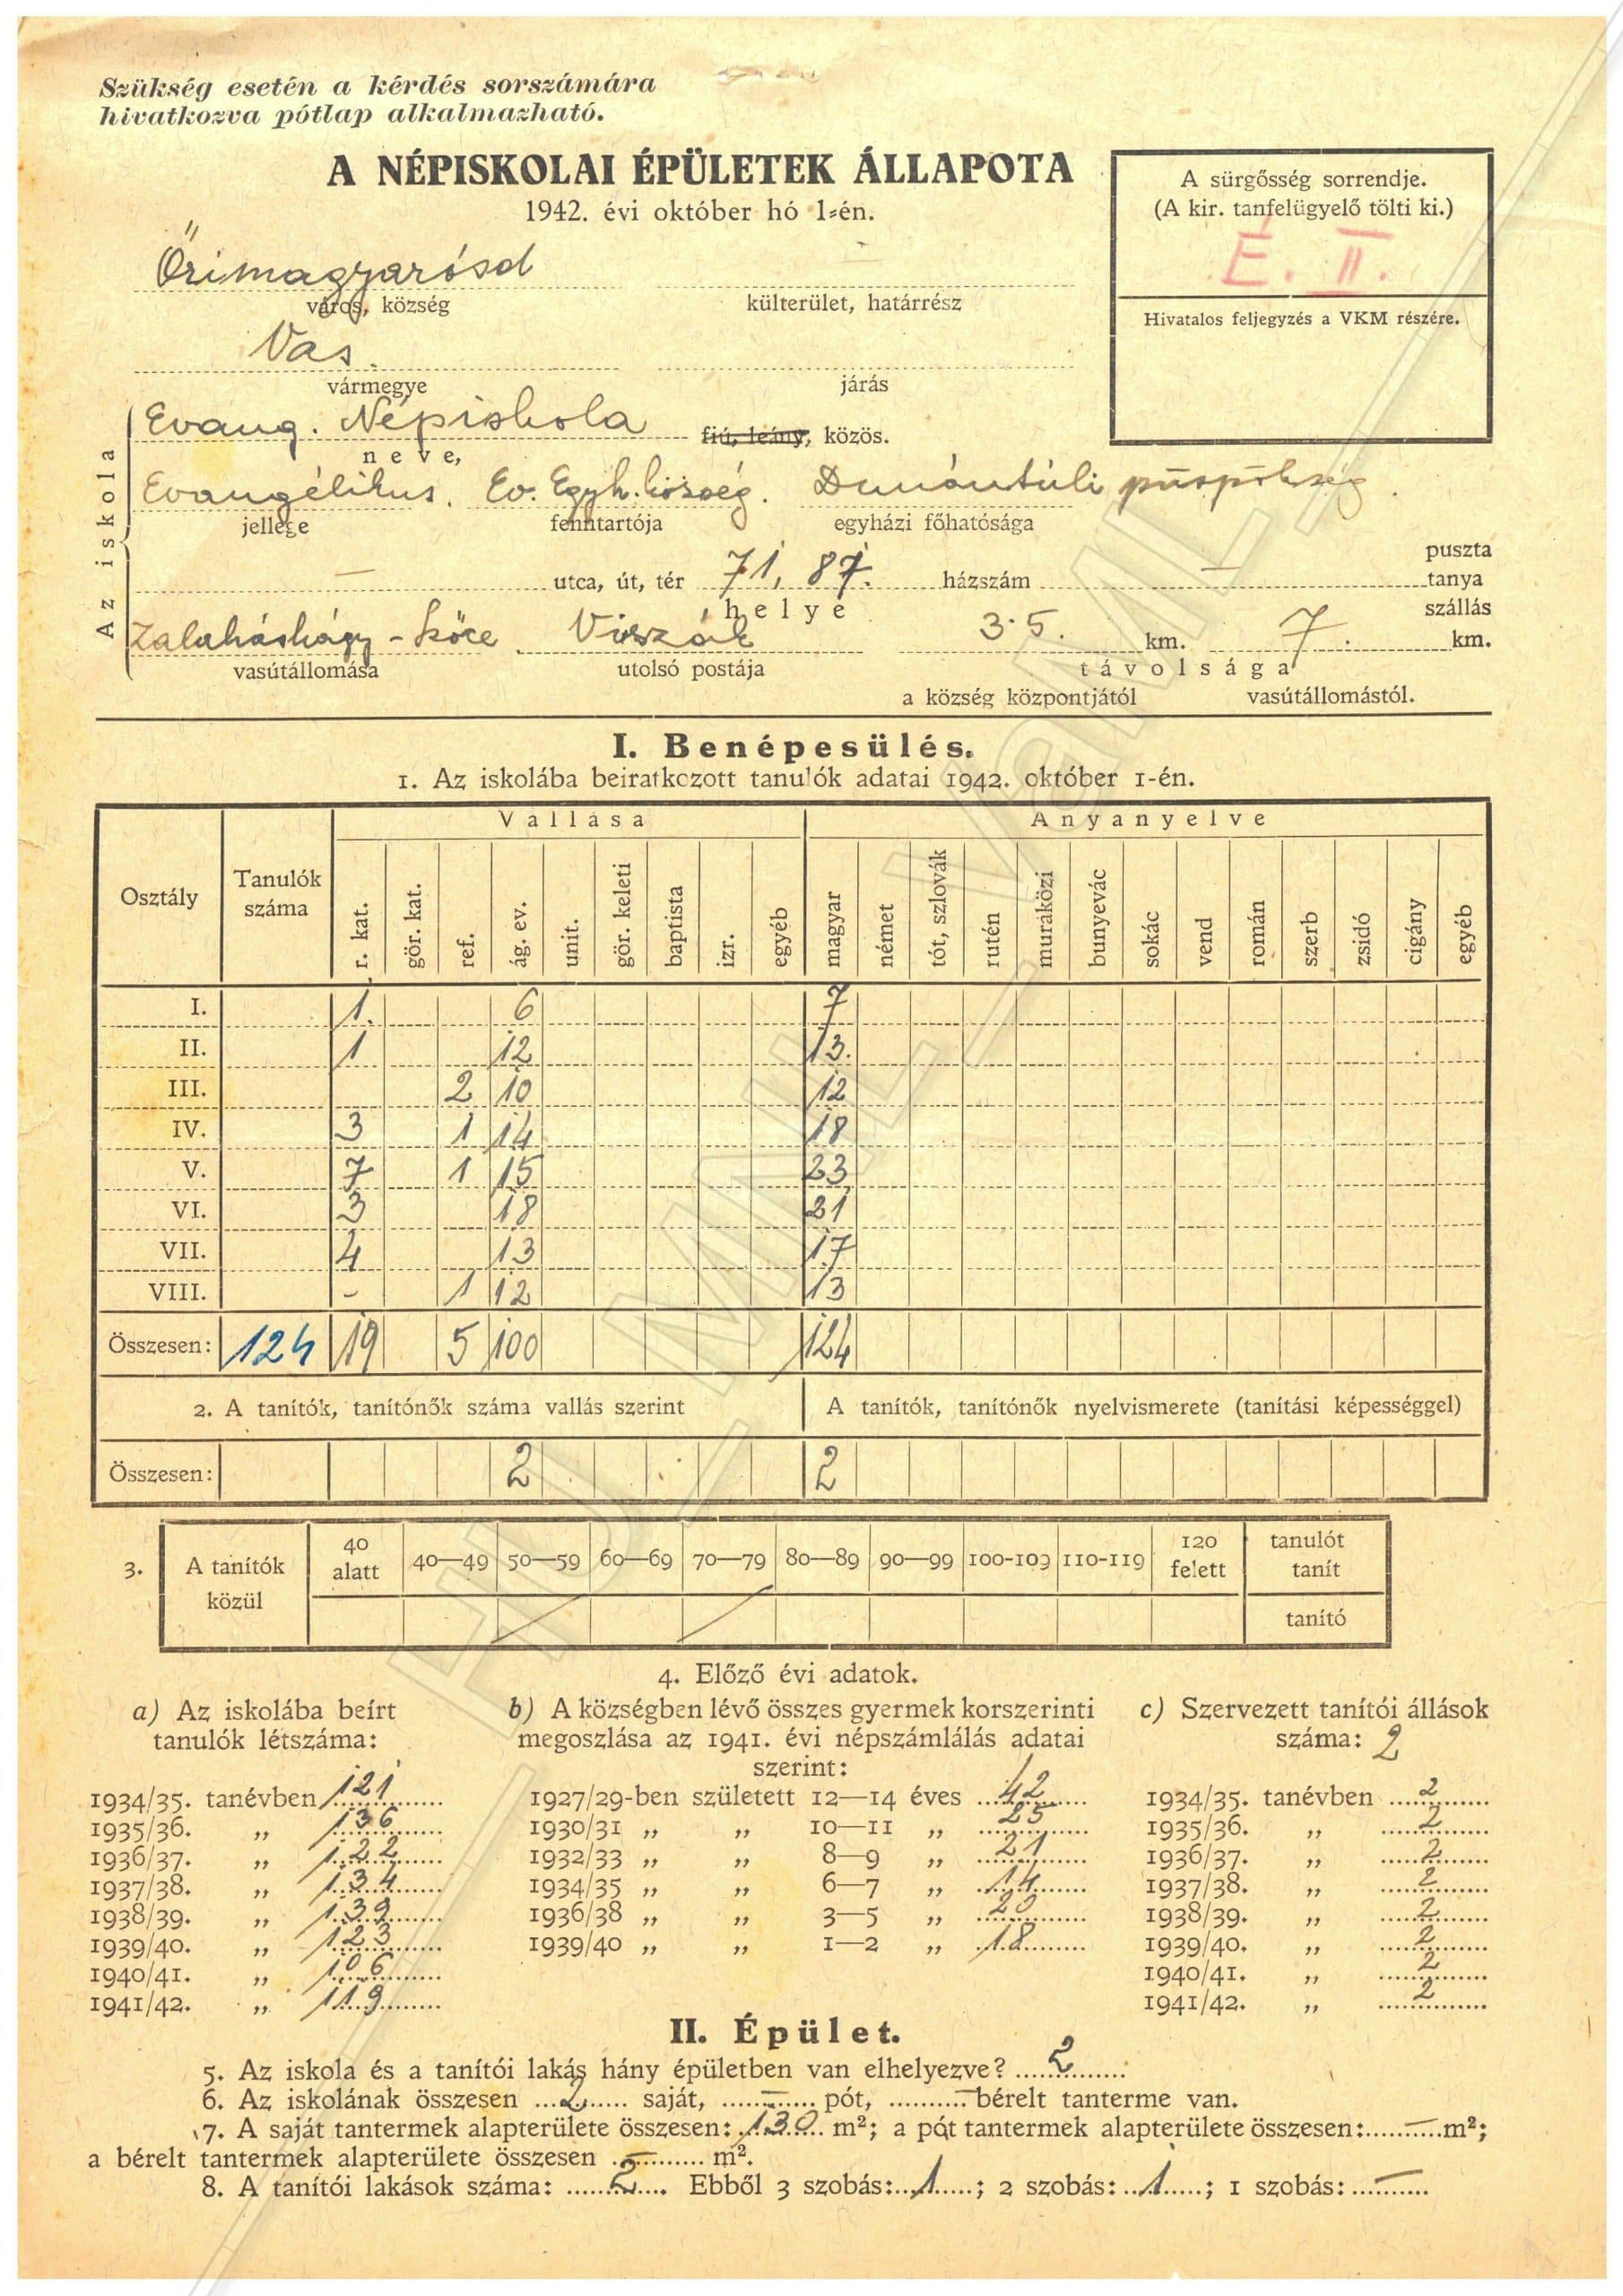 Szükség esetén a kérdés sorszámára
hivatkozva pótlap alkalmazható.
A NÉPISKOLAI ÉPÜLETEK ÁLLAPOTA
1942. évi október hó 1-én.
A sürgősség sorrendje.
(A kir. tanfelügyelő tölti ki.)
É. II.
Hivatalos feljegyzés a VKM részére.
Őrimagyarósd
város, község külterület, határrész
Vas.
vármegye járás
Az iskola
Evang. Népiskola fiú, leány, közös.
neve,
Evangélikus. Ev. Egyh.község. Dunántúli püspökség.
jellege fenntartója egyházi főhatósága
— utca, út, tér 71, 87. házszám — puszta
tanya
szállás
helye
Zalaháshágy-Szőce Viszák 3·5. km. 7. km.
vasútállomása utolsó postája távolsága
a község központjától vasútállomástól.
I. Benépesülés.
1. Az iskolába beiratkozott tanulók adatai 1942. október 1-én.
Osztály Tanulók száma Vallása Anyanyelve
r. kat. gör. kat. ref. ág. ev. unit. gör. keleti baptista izr. egyéb magyar német tót, szlovák rutén muraközi bunyevác sokác vend román szerb zsidó cigány egyéb
I. 1. 6 7
II. 1 12 13.
III. 2 10 12
IV. 3 1 14 18
V. 7 1 15 23
VI. 3 18 21
VII. 4 13 17
VIII. - 1 12 13
Összesen: 124 19 5 100 124
2. A tanítók, tanítónők száma vallás szerint A tanítók, tanítónők nyelvismerete (tanítási képességgel)
Összesen: 2 2
3. A tanítók közül 40 alatt 40—49 50—59 60—69 70—79 80—89 90—99 100-109 110-119 120 felett tanulót tanít
tanító
4. Előző évi adatok.
a) Az iskolába beírt
tanulók létszáma:
1934/35. tanévben 121
1935/36. „ 136
1936/37. „ 122
1937/38. „ 134
1938/39. „ 139
1939/40. „ 123
1940/41. „ 106
1941/42. „ 119
b) A községben lévő összes gyermek korszerinti
megoszlása az 1941. évi népszámlálás adatai
szerint:
1927/29-ben született 12—14 éves 42
1930/31 „ „ 10—11 „ 25
1932/33 „ „ 8—9 „ 21
1934/35 „ „ 6—7 „ 14
1936/38 „ „ 3—5 „ 20
1939/40 „ „ 1—2 „ 18
c) Szervezett tanítói állások
száma: 2
1934/35. tanévben 2
1935/36. „ 2
1936/37. „ 2
1937/38. „ 2
1938/39. „ 2
1939/40. „ 2
1940/41. „ 2
1941/42. „ 2
II. Épület.
5. Az iskola és a tanítói lakás hány épületben van elhelyezve? 2
6. Az iskolának összesen 2 saját, — pót, — bérelt tanterme van.
7. A saját tantermek alapterülete összesen: 130 m²; a pót tantermek alapterülete összesen: — m²;
a bérelt tantermek alapterülete összesen — m².
8. A tanítói lakások száma: 2. Ebből 3 szobás: 1; 2 szobás: 1; 1 szobás: —
HU_MNL_VaML